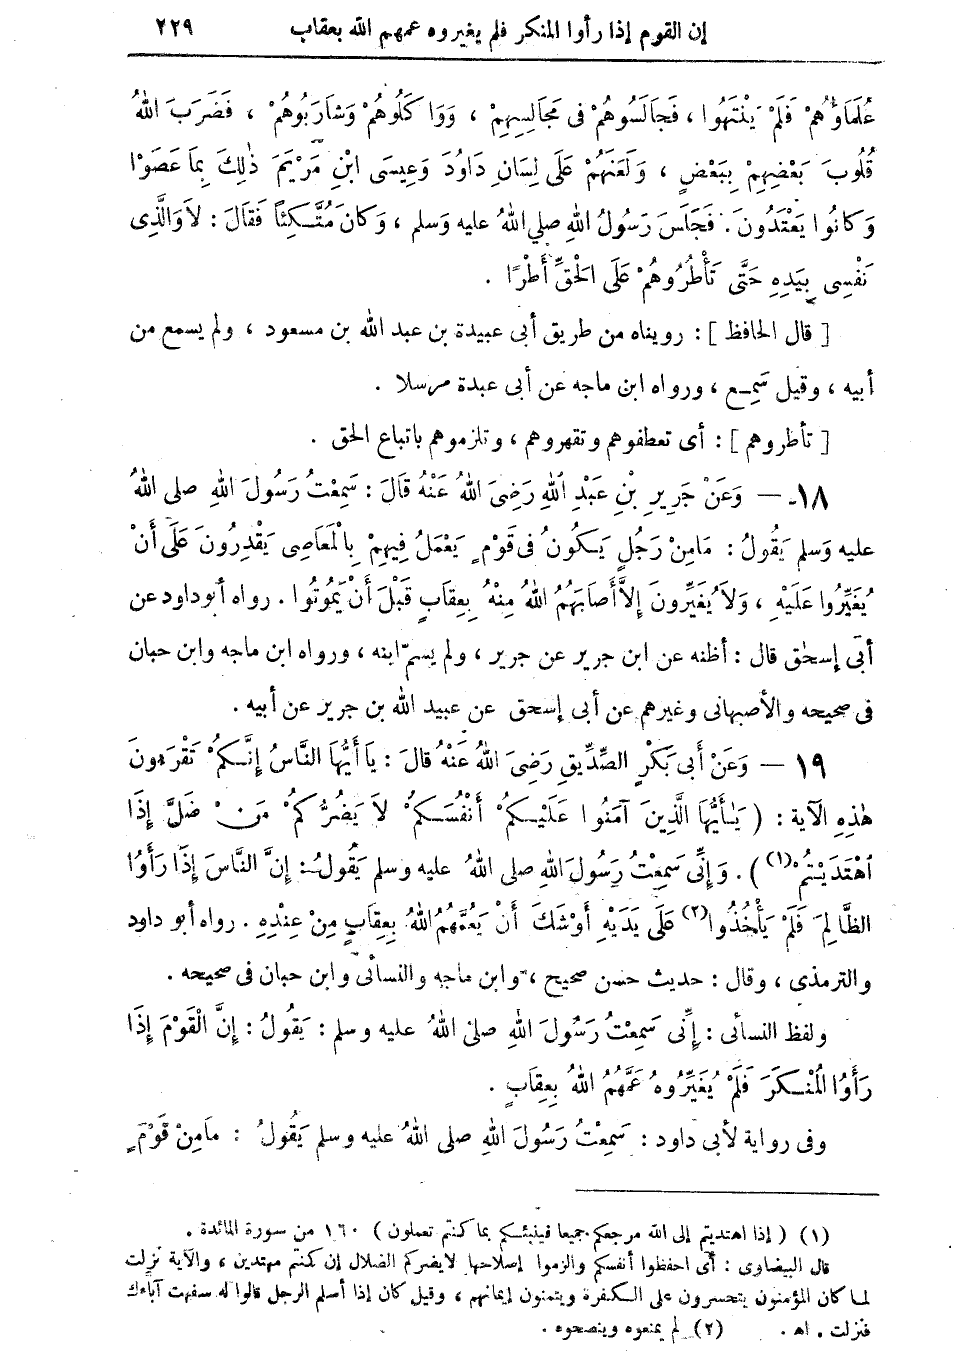 إن القوم إذا رأوا المنكر فلم يغيروه عمهم الله بعقاب ٢٢٩
عُلَمَاؤُهُمْ فَلَمْ يَنْتَهُوا ، فَجَالَسُوهُمْ فِى مَجَالِسِهِمْ ، وَوَاكَلُوهُمْ وَشَارَبُوهُمْ ، فَضَرَبَ اللهُ
قُلُوبَ بَعْضِهِمْ بِبَعْضٍ ، وَلَعَنَهُمْ عَلَى لِسَانِ دَاوُدَ وَعِيسَى ابْنِ مَرْيَمَ ذٰلِكَ بِمَا عَصَوْا
وَكَانُوا يَعْتَدُونَ. فَجَلَسَ رَسُولُ اللهِ صلى اللهُ عليه وَسلم ، وَكَانَ مُتَّكِئًا فَقَالَ : لاَ وَالَّذِى
نَفْسِى بِيَدِهِ حَتَّى تَأْطُرُوهُمْ عَلَى الْحَقِّ أَطْرًا .
[ قال الحافظ ] : رويناه من طريق أبى عبيدة بن عبد الله بن مسعود ، ولم يسمع من
أبيه ، وقيل سَمِـع ، ورواه ابن ماجه عن أبى عبدة مرسلا .
[ تأطروهم ] : أى تعطفوهم وتقهروهم ، وتلزموهم باتباع الحق .
١٨ـ — وَعَنْ جَرِيرِ بْنِ عَبْدِ اللهِ رَضِىَ اللهُ عَنْهُ قَالَ : سَمِعْتُ رَسُولَ اللهِ صلى اللهُ
عليه وَسلم يَقُولُ : مَا مِنْ رَجُلٍ يَكُونُ فِى قَوْمٍ يَعْمَلُ فِيهِمْ بِالْمَعَاصِى يَقْدِرُونَ عَلَى أَنْ
يُغَيِّرُوا عَلَيْهِ ، وَلاَ يُغَيِّرُونَ إِلاَّ أَصَابَهُمُ اللهُ مِنْهُ بِعِقَابٍ قَبْلَ أَنْ يَمُوتُوا . رواه أبو داود عن
أبى إسحٰق قال : أظنه عن ابن جرير عن جرير ، ولم يسمّ ابنه ، ورواه ابن ماجه وابن حبان
فى صحيحه والأصبهانى وغيرهم عن أبى إسحق عن عبيد الله بن جرير عن أبيه .
١٩ — وَعَنْ أَبِى بَكْرٍ الصِّدِّيقِ رَضِىَ اللهُ عَنْهُ قَالَ : يَا أَيُّهَا النَّاسُ إِنَّكُمْ تَقْرَءونَ
هٰذِهِ الآيةَ : ( يَٰأَيُّهَا الَّذِينَ آمَنُوا عَلَيْكُمْ أَنْفُسَكُمْ لاَ يَضُرُّكُمْ مَنْ ضَلَّ إِذَا
اهْتَدَيْتُمْ(١) ) . وَإِنِّى سَمِعْتُ رَسُولَ اللهِ صلى اللهُ عليه وسلم يَقُولُ : إِنَّ النَّاسَ إِذَا رَأَوُا
الظَّالِمَ فَلَمْ يَأْخُذُوا(٢) عَلَى يَدَيْهِ أَوْشَكَ أَنْ يَعُمَّهُمُ اللهُ بِعِقَابٍ مِنْ عِنْدِهِ . رواه أبو داود
والترمذى ، وقال : حديث حسن صحيح ، وابن ماجه والنسائى وابن حبان فى صحيحه .
ولفظ النسائى : إِنِّى سَمِعْتُ رَسُولَ اللهِ صلى اللهُ عليه وسلم : يَقُولُ : إِنَّ الْقَوْمَ إِذَا
رَأَوُا الْمُنْكَرَ فَلَمْ يُغَيِّرُوهُ عَمَّهُمُ اللهُ بِعِقَابٍ .
وفى رواية لأبى داود : سَمِعْتُ رَسُولَ اللهِ صلى اللهُ عليه وسلم يَقُولُ : مَا مِنْ قَوْمٍ
(١) ( إذا اهتديتم إلى الله مرجعكم جميعا فينبئكم بما كنتم تعملون ) ١٦٠ من سورة المائدة .
قال البيضاوى : أى احفظوا أنفسكم والزموا إصلاحها لا يضركم الضلال إن كنتم مهتدين ، والآية نزلت
لما كان المؤمنون يتحسرون على الكفرة ويتمنون إيمانهم ، وقيل كان إذا أسلم الرجل قالوا له سفهت آباءك
فنزلت . اهـ . (٢) لم يمنعوه وينصحوه .